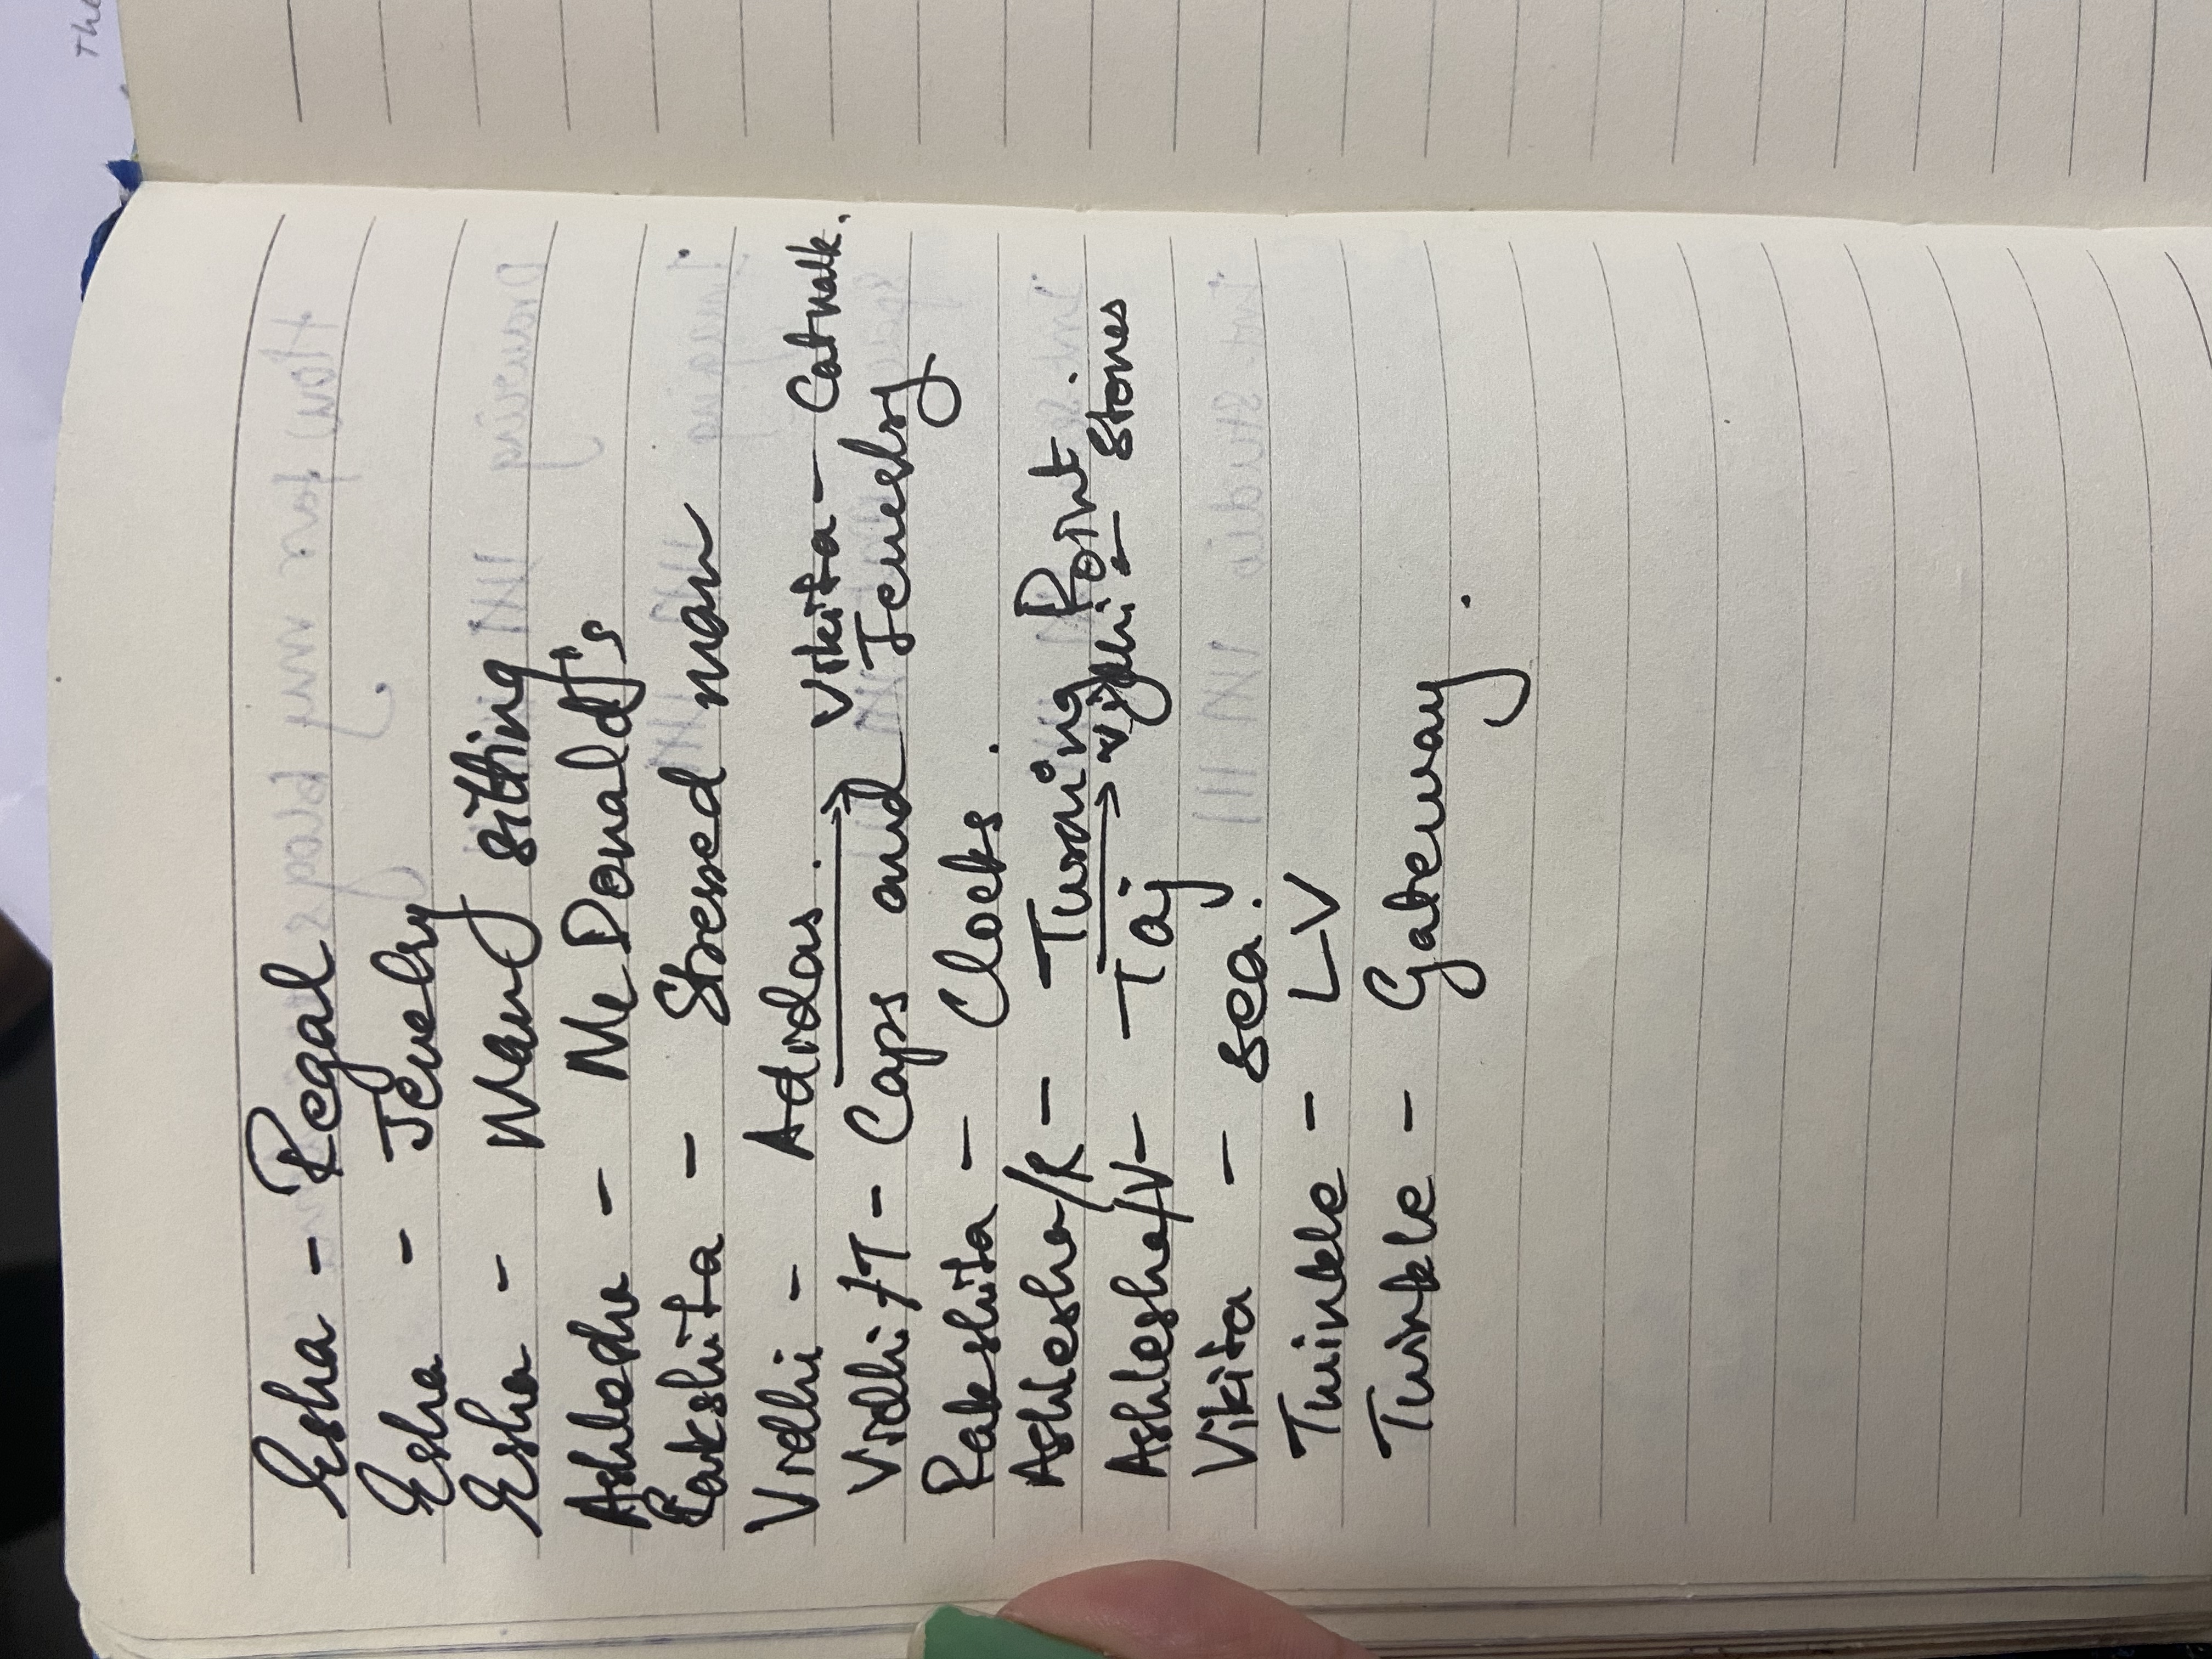 Esha - Regal
Esha - Jewelry
Esha - Many sitting
Ashlesha - McDonald's
Rakshita - Stressed man
Vidhi - Adidas. → Vikita - Catwalk.
Vidhi/T - Caps and Jewelry
Rakshita - Clocks.
Ashlesha/R - Turning Point.
→ Vidhi - Stones
Ashlesha/V - Taj
Vikita - Sea.
Twinkle - LV
Twinkle - Gateway.